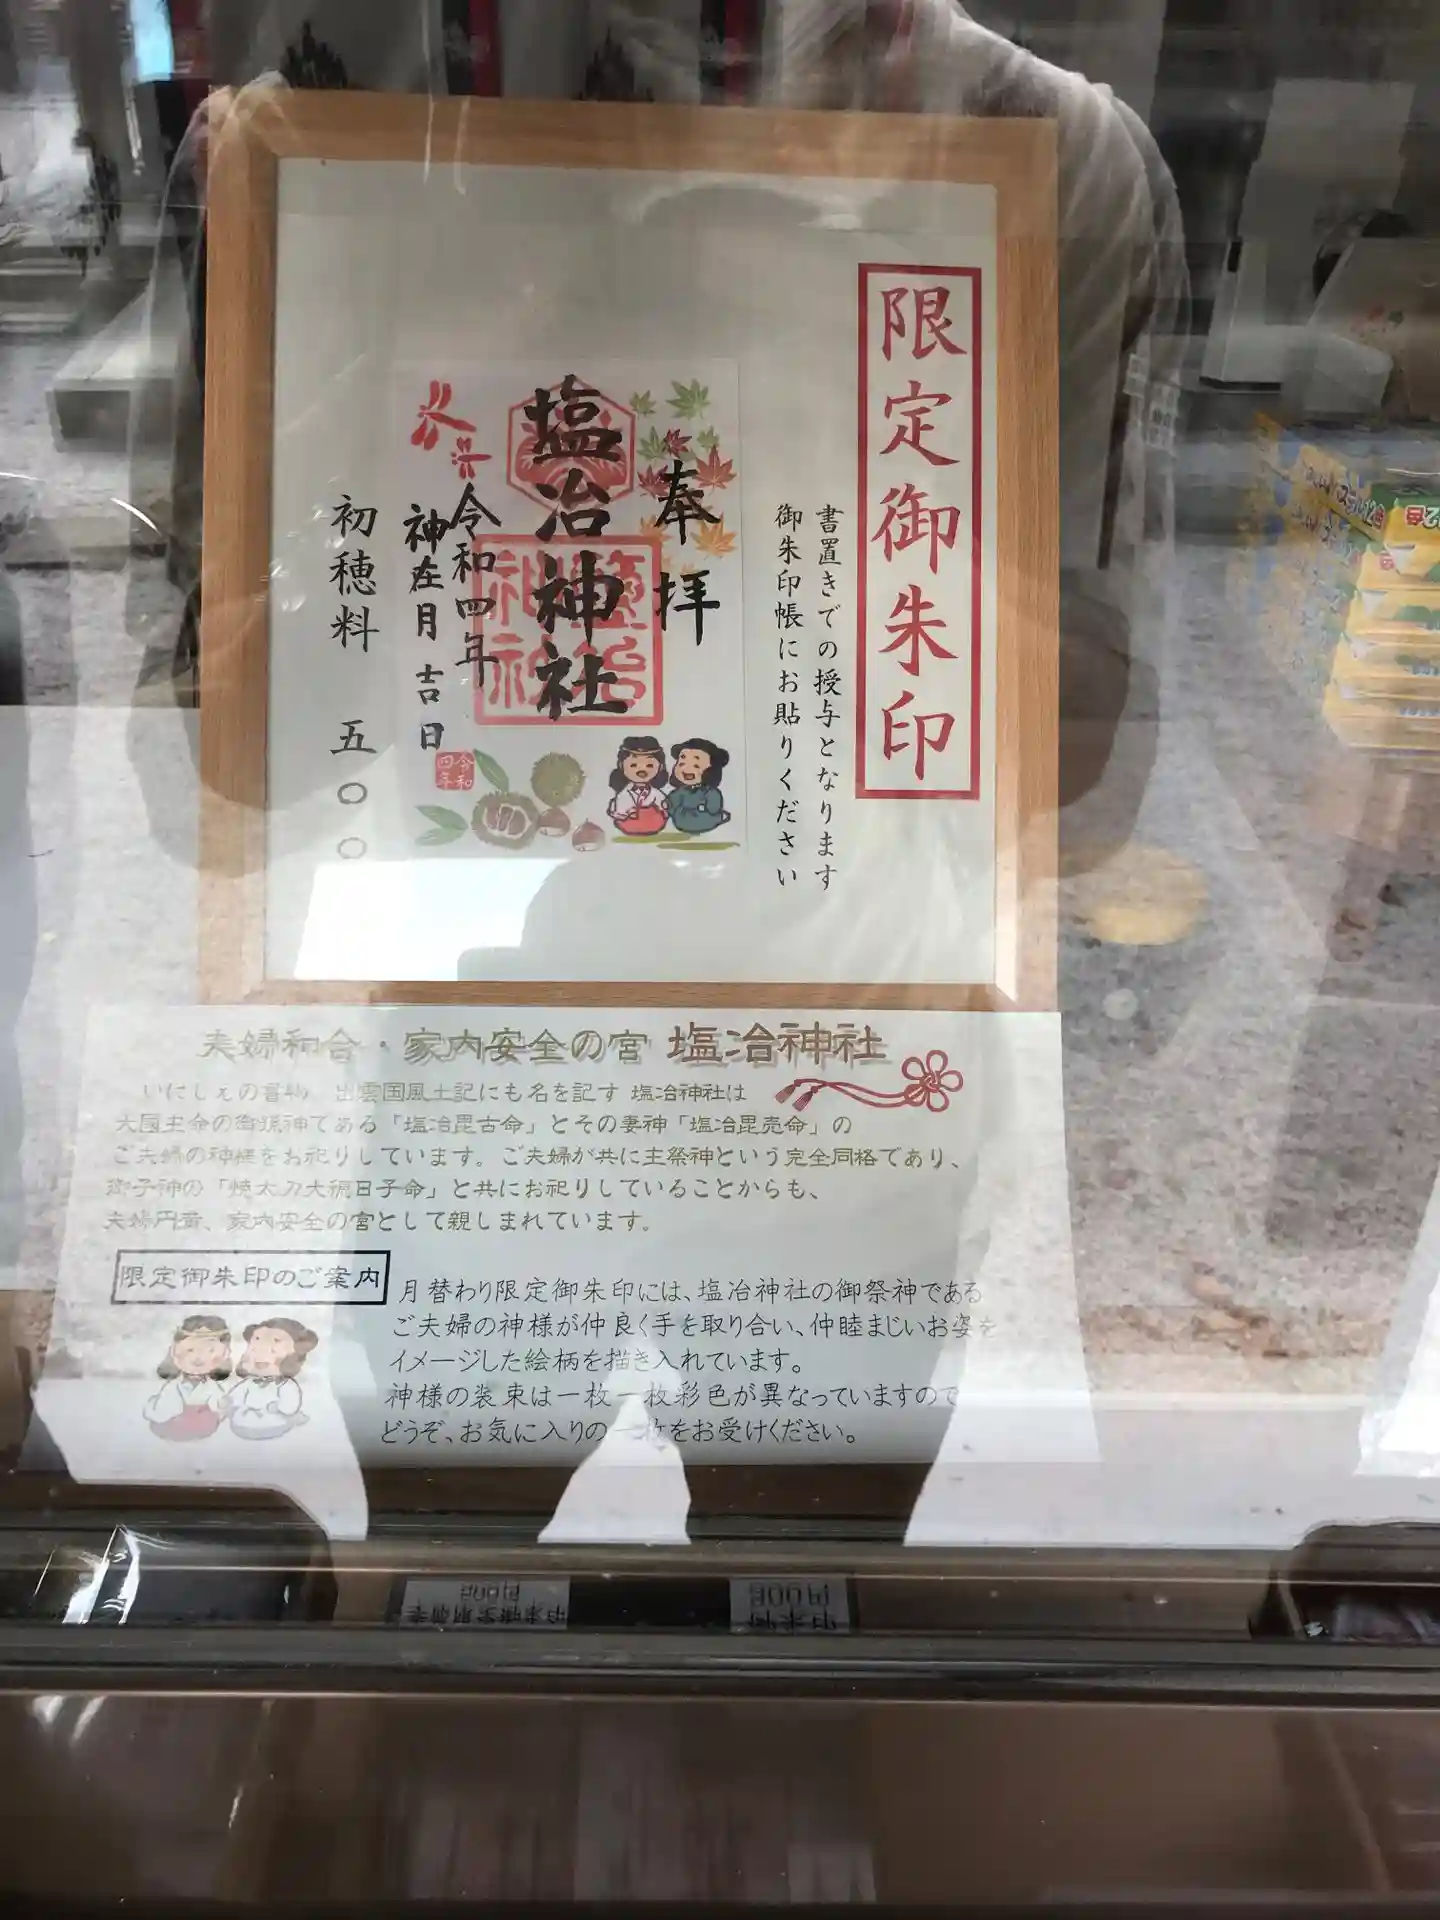 限定御朱印
書置きでの授与となります
御朱印帳にお貼りください
奉拝
塩冶神社
令和四年
神在月吉日
令和
四年
初穂料 五〇〇
夫婦和合・家内安全の宮 塩冶神社
いにしえの書物 出雲国風土記にも名を記す 塩冶神社は
大国主命の御孫神である「塩冶毘古命」とその妻神「塩冶毘売命」の
ご夫婦の神様をお祀りしています。ご夫婦が共に主祭神という完全同格であり、
御子神の「焼太刀大穂日子命」と共にお祀りしていることからも、
夫婦円満、家内安全の宮として親しまれています。
限定御朱印のご案内
月替わり限定御朱印には、塩冶神社の御祭神である
ご夫婦の神様が仲良く手を取り合い、仲睦まじいお姿を
イメージした絵柄を描き入れています。
神様の装束は一枚一枚彩色が異なっていますので
どうぞ、お気に入りの一枚をお受けください。